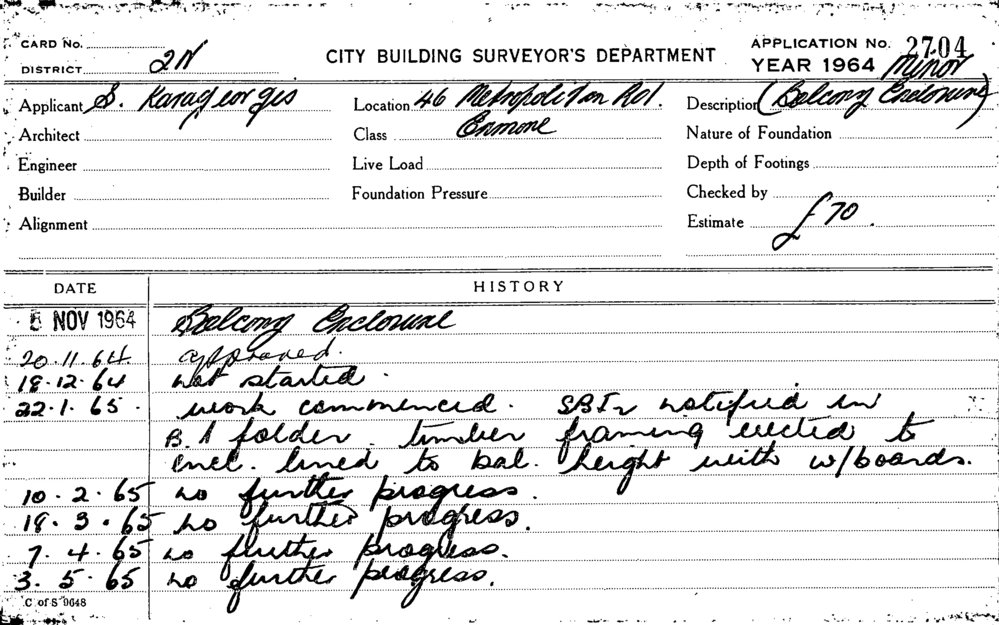 CARD No.
DISTRICT 2N
CITY BUILDING SURVEYOR'S DEPARTMENT
APPLICATION No. 2704
YEAR 1964 Minor
Applicant S. Karageorges
Location 46 Metropolitan Rd.
Description (Balcony Enclosure)
Architect
Class Enmore
Nature of Foundation
Engineer
Live Load
Depth of Footings
Builder
Foundation Pressure
Checked by
Alignment
Estimate £70.
DATE HISTORY
5 NOV 1964 Balcony Enclosure
20.11.64 approved.
18.12.64 not started.
22.1.65. work commenced. notified in
B.1 folder. timber framing erected to
encl. lined to bal. height with w/boards.
10.2.65 no further progress.
18.3.65 no further progress.
7.4.65 no further progress.
3.5.65 no further progress.
C of S 9648